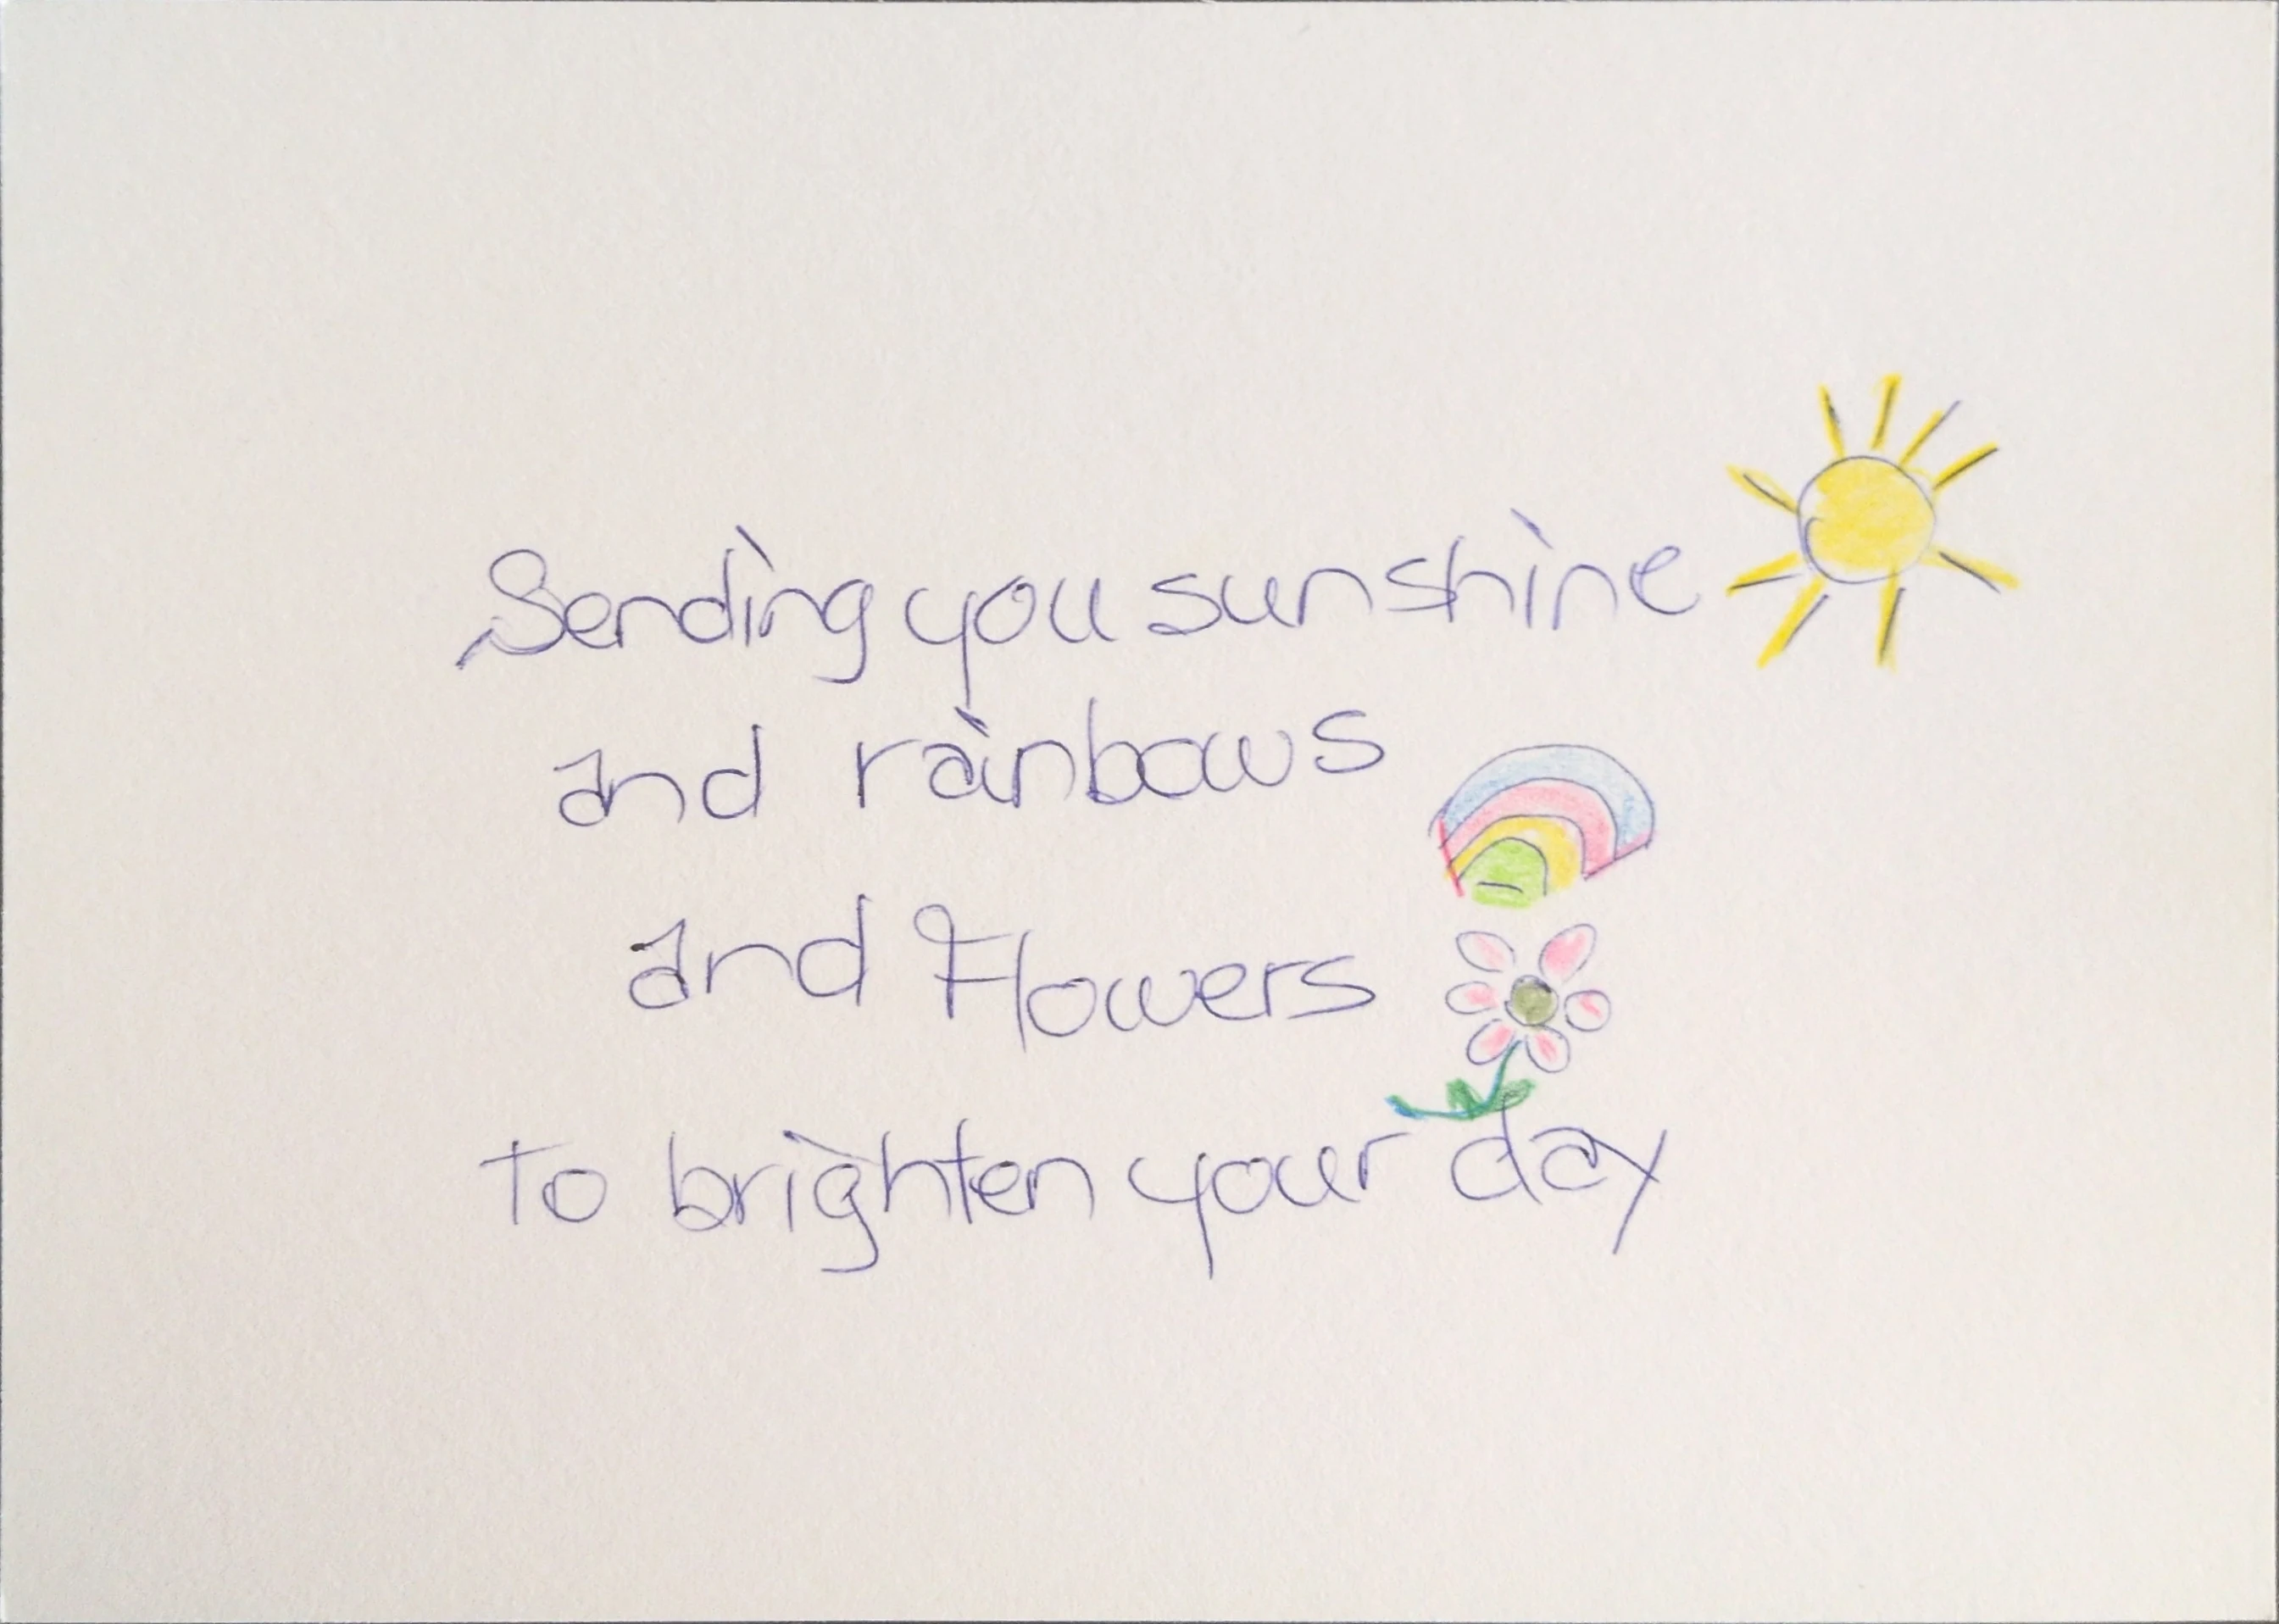 Sending you sunshine
and rainbows
and Flowers
to brighten your day